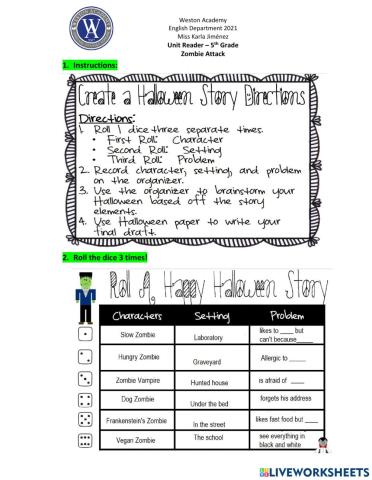 W
Weston Academy
English Department 2021
Miss Karla Jiménez
Unit Reader – 5th Grade
Zombie Attack
1. Instructions:
Create a Halloween Story Directions
Directions:
1. Roll 1 dice three separate times.
• First Roll: Character
• Second Roll: Setting
• Third Roll: Problem
2. Record character, setting, and problem
on the organizer.
3. Use the organizer to brainstorm your
Halloween based off the story
elements.
4. Use Halloween paper to write your
final draft.
2. Roll the dice 3 times!
Roll A, Happy Halloween Story
Characters Setting Problem
Slow Zombie Laboratory likes to ____ but
can't because_____
Hungry Zombie Graveyard Allergic to _____
Zombie Vampire Hunted house is afraid of ____
Dog Zombie Under the bed forgets his address
Frankenstein's Zombie In the street likes fast food but ____
Vegan Zombie The school see everything in
black and white
LIVEWORKSHEETS